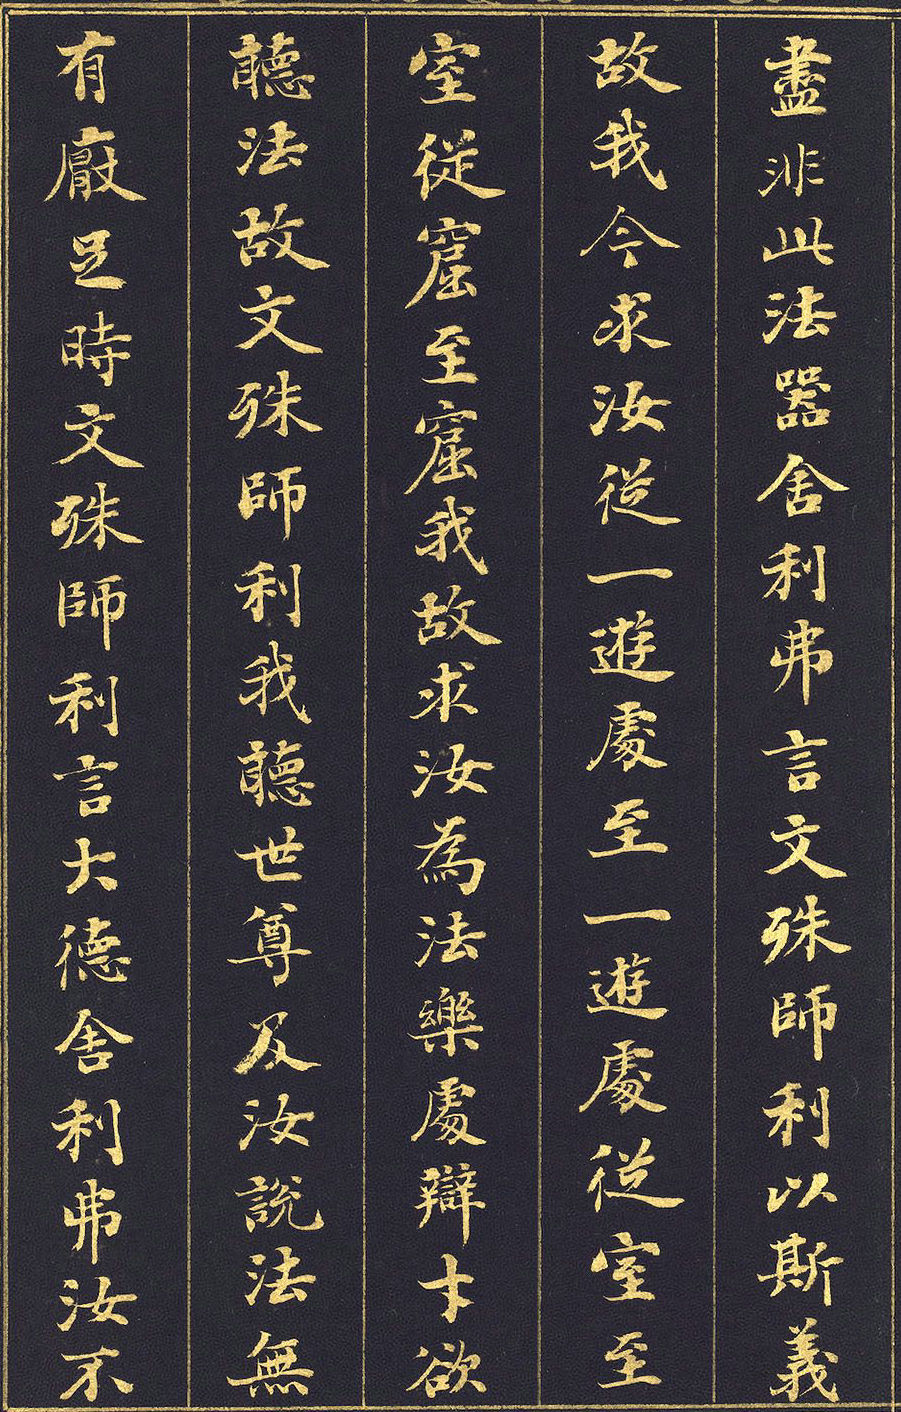 盡非此法器舍利弗言文殊師利以斯義
故我今求汝從一遊處至一遊處從室至
室從窟至窟我故求汝為法樂處辯才欲
聽法故文殊師利我聽世尊及汝說法無
有厭足時文殊師利言大德舍利弗汝不